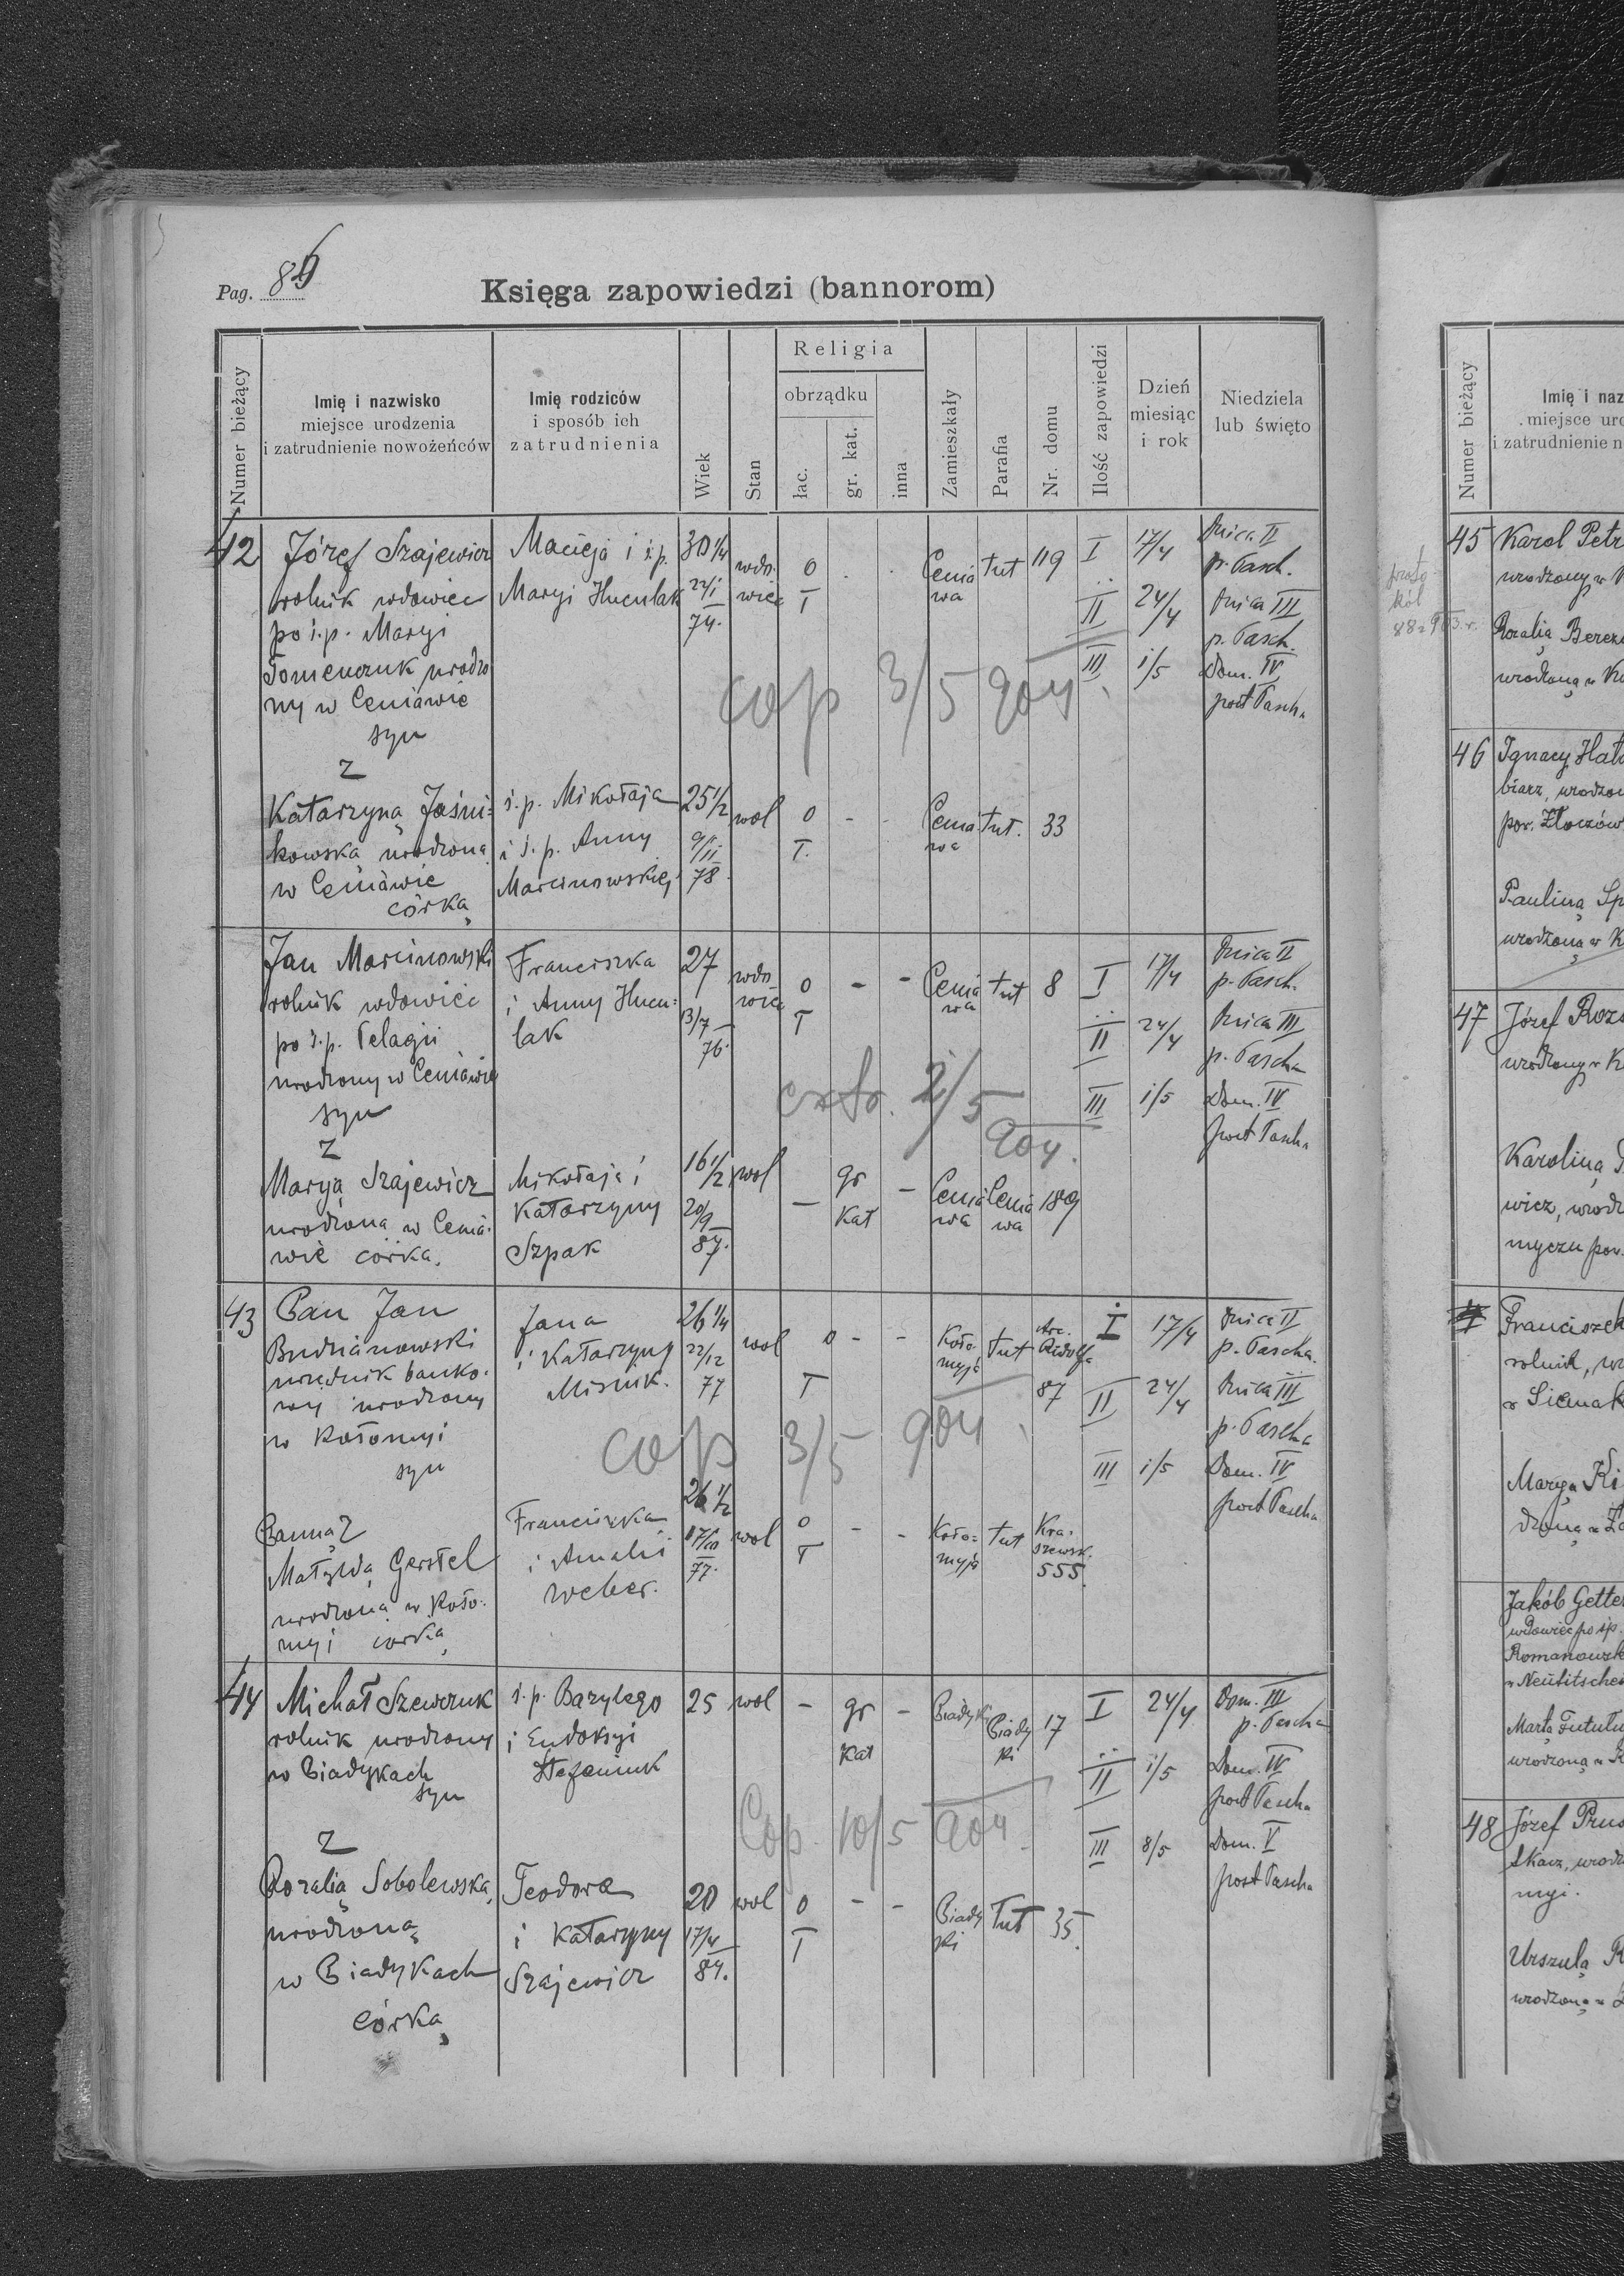 Pag. 86
Księga zapowiedzi (bannorom)
Numer bieżący
Imię i nazwisko
miejsce urodzenia
i zatrudnienie nowożeńców
Imię rodziców
i sposób ich
zatrudnienia
Wiek
Stan
Religia
obrządku
łac.
gr. kat.
inna
Zamieszkały
Parafia
Nr. domu
Ilość zapowiedzi
Dzień
miesiąc
i rok
Niedziela
lub święto
42
Józef Szajewicz
rolnik wdowiec
po ś.p. Maryi
Tomenczuk urodzo
ny w Ceniawie
syn
Macieja i ś.p.
Maryi Huculak
30 1/4
22/1
74.
wdo-
wiec
O
T
Cenia
wa
tut
119
I 17/4 Dnica II
p. Pasch.
II 24/4 Dnica III
p. Pasch.
III 1/5 Dom. IV
post Pascha
cop 3/5 904
z
Katarzyną Jaśni-
kowską urodzoną
w Ceniawie
córką
ś.p. Mikołaja
i ś.p. Anny
Marcinowskiej
25 1/2
9/11
78
wol
O
T.
Cenia
wa
tut.
33
Jan Marcinowski
rolnik wdowiec
po ś.p. Pelagii
urodzony w Ceniawie
syn
Franciszka
i Anny Hucu-
lak
27
13/7
76.
wdo
wiec
O
T
Cenia
wa
tut
8
I 17/4 Dnica II
p. Pasch.
II 24/4 Dnica III
p. Pascha
III 1/5 Dom. IV
post Pascha
extr. 2/5
904.
z
Maryą Szajewicz
urodzoną w Cenia-
wie córką.
Mikołaja i
Katarzyny
Szpak
16 1/2
20/9
87.
wol
gr
Kat
Cenia
wa
Cenia
wa
189
43
Pan Jan
Budzianowski
urzędnik banko-
wy urodzony
w Kołomyi
syn
Jana
i Katarzyny
Misiuk.
26 1/4
22/12
77
wol
O
T
Koło-
myja
tut
Arc.
Rudolfa
87
I 17/4 Dnica II
p. Pascha.
II 24/4 Dnica III
p. Pascha
III 1/5 Dom. IV
post Pascha
cop 3/5 904
Panną z
Matyldą Gerstel
urodzoną w Koło-
myi córką
Franciszka
i Amalii
Weber.
26 1/2
17/10
77.
wol
O
T
Koło-
myja
tut
Kra-
szewsk.
555.
44
Michał Szewczuk
rolnik urodzony
w Diadykach
syn
ś.p. Bazylego
i Eudoksyi
Stefaniuk
25
wol
gr
Kat
Diadyki
Diady
ki
17
I 24/4 Dom. III
p. Pascha
II 1/5 Dom. IV
post Pascha
III 8/5 Dom. V
post Pascha
Cop. 10/5 904
z
Rozalią Sobolewską
urodzoną
w Diadykach
córką
Teodora
i Katarzyny
Szajewicz
20
84.
wol
O
T
Diady
ki
tut
35.
Numer bieżący
Imię i naz
miejsce uro
i zatrudnienie n
45
Karol Petr
urodzony w
88 z 903 r.
46
Ignacy
pow. Złoczów
Pauliną Sp
urodzoną w K
47
Józef
urodzony w K
Karoliną
wicz, urodz
Franciszek
rolnik, ur
Maryą Ki
Jakób Gette
wdowiec po ś.p.
w Neutitschei
urodzoną w
48
Józef Prus
myi.
Urszulą
urodzoną w